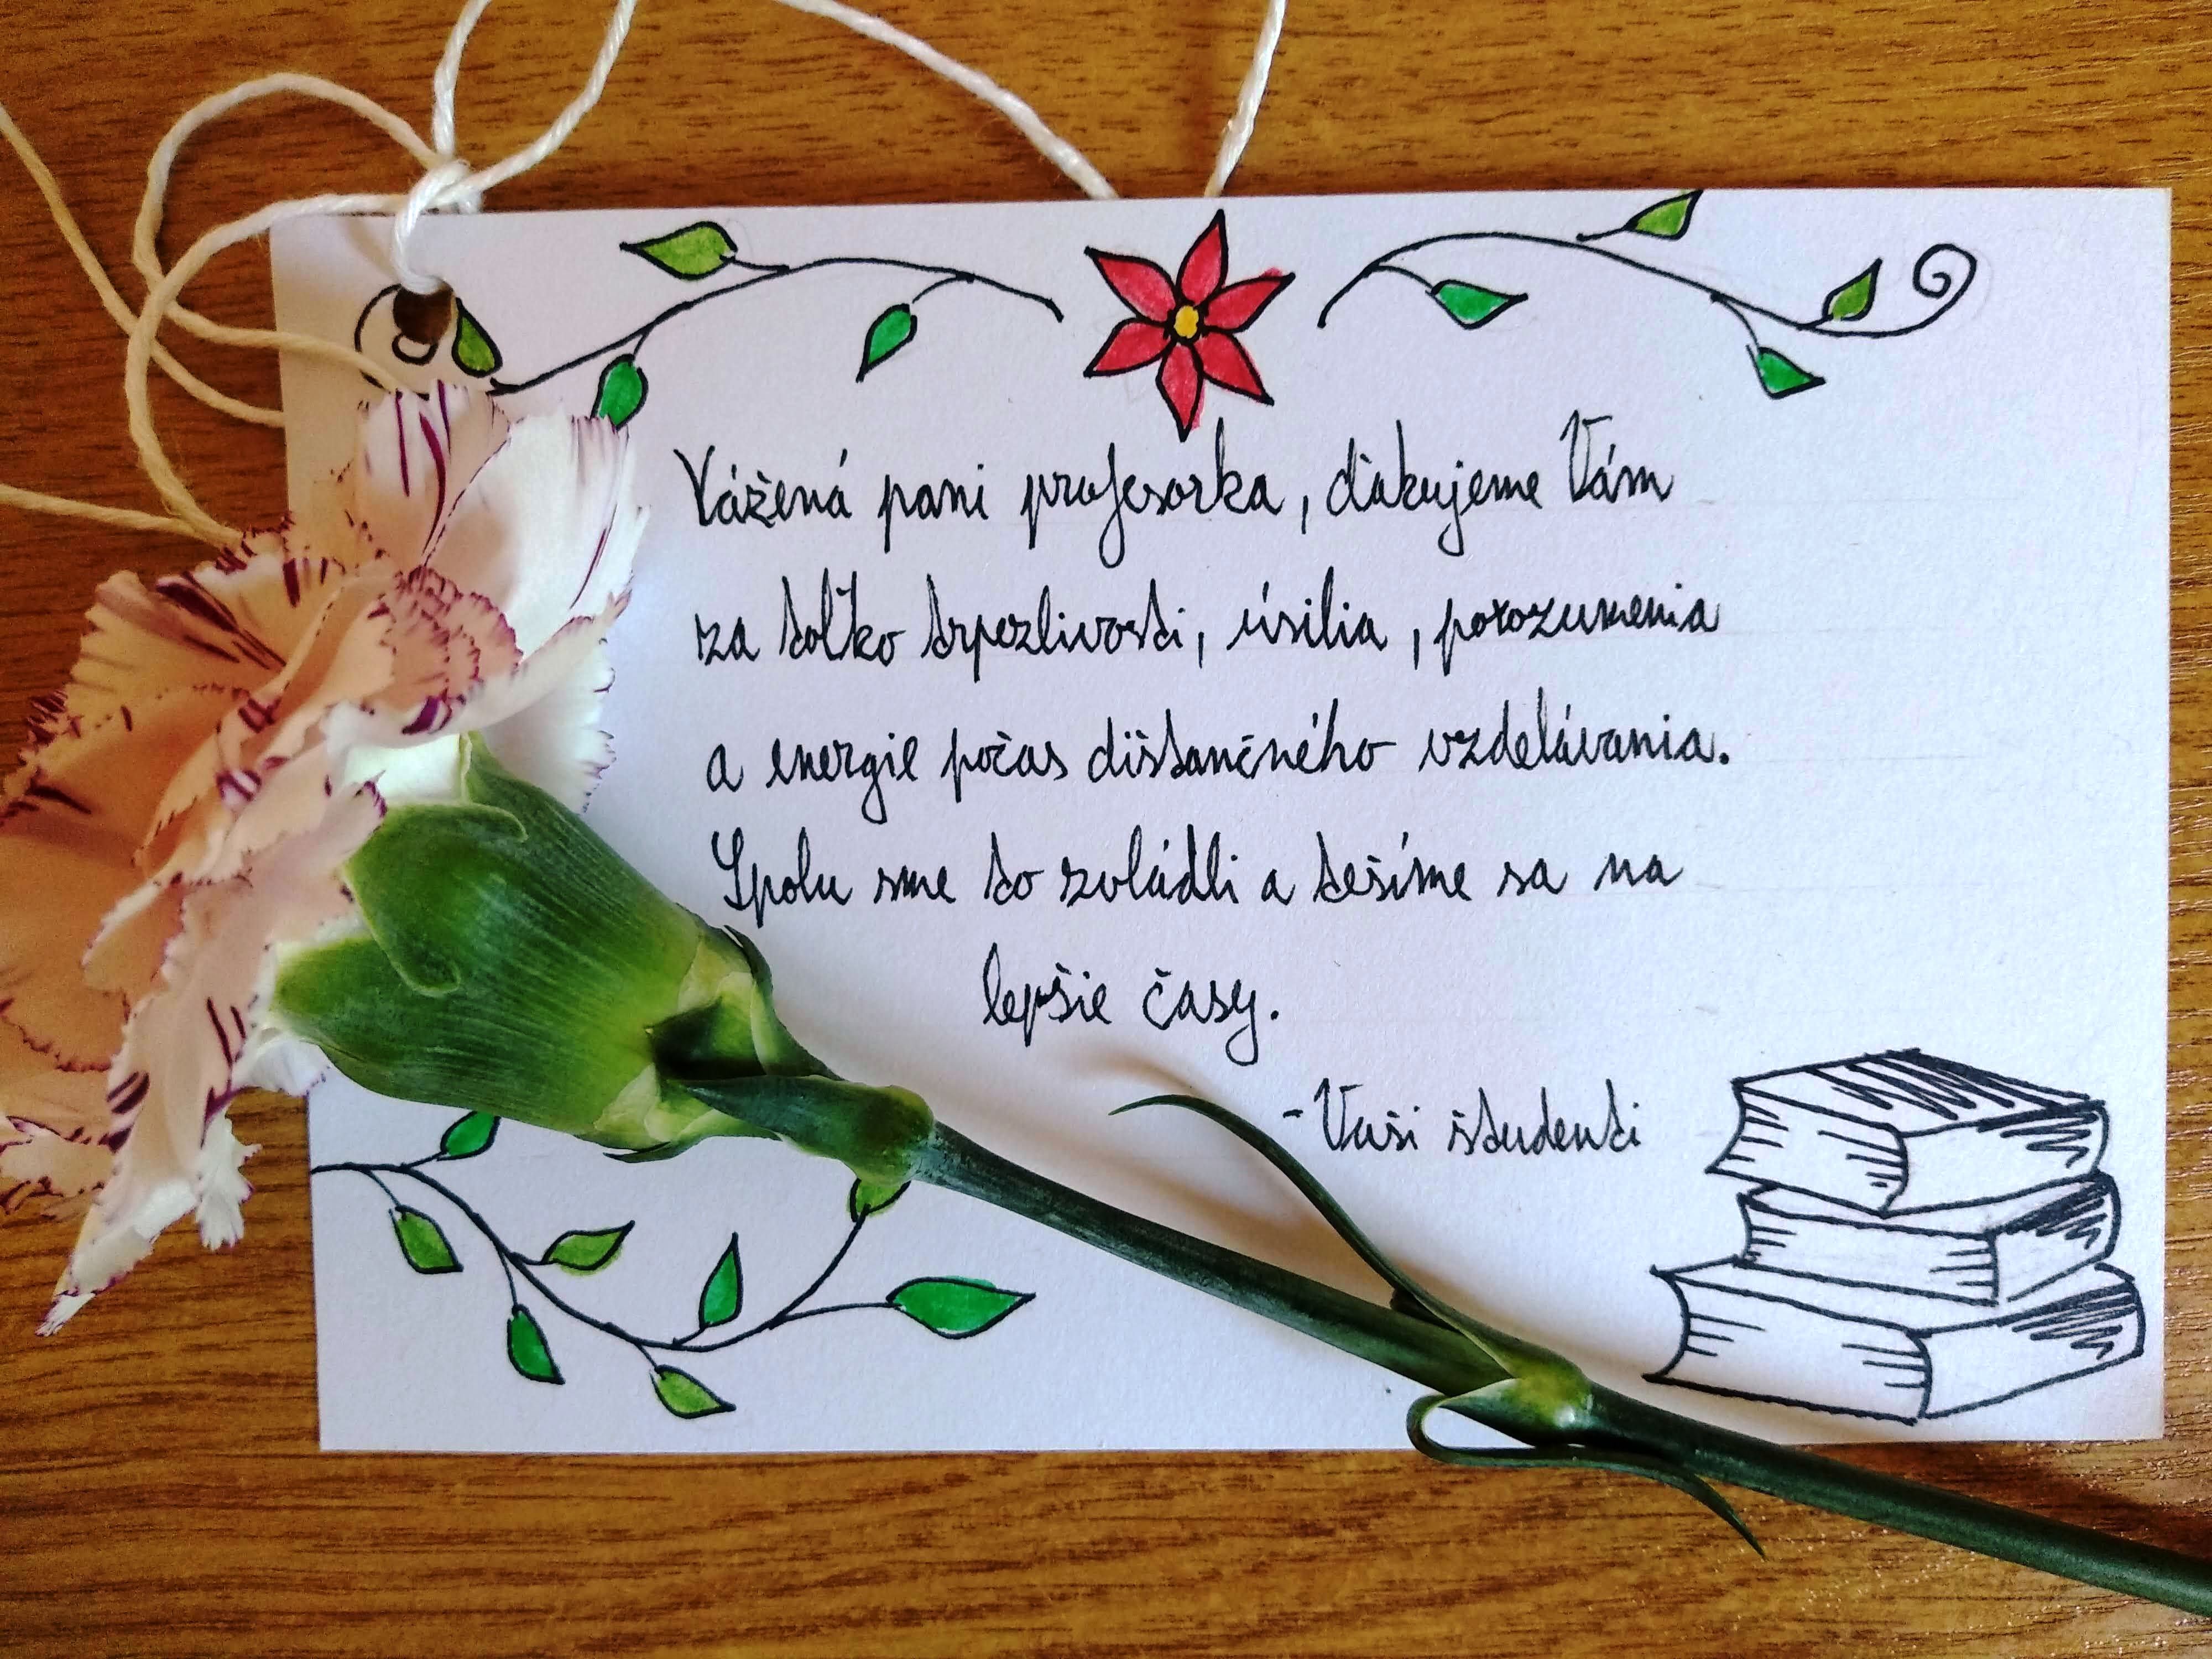 Vážená pani profesorka, ďakujeme Vám
za toľko trpezlivosti, úsilia, porozumenia
a energie počas dištančného vzdelávania.
Spolu sme to zvládli a tešíme sa na
lepšie časy.
- Vaši študenti